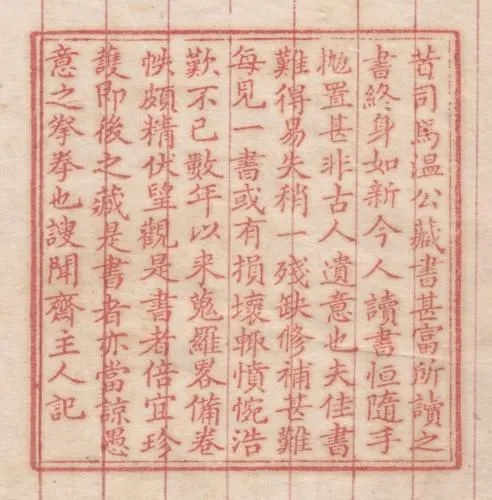 昔司馬温公藏書甚富所讀之
書終身如新今人讀書恒隨手
抛置甚非古人遺意也夫佳書
難得易失稍一殘缺修補甚難
每見一書或有損壞輒憤惋浩
歎不已數年以來蒐羅畧備卷
帙頗精伏望觀是書者倍宜珍
護即後之藏是書者亦當諒愚
意之拳拳也謏聞齋主人記